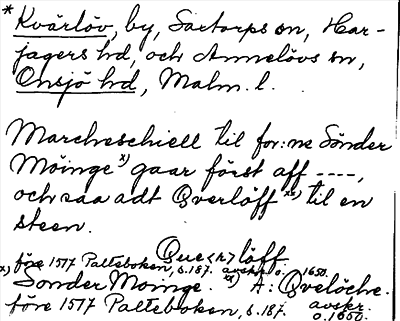 * Kvärlöv, by, Saxtorps sn, Har-
jagers hd, och Annelövs sn,
Onsjö hd, Malm. l.
Marcheschiell til for:ne Sönder
Möinge x) gaar först aff ----,
och saa adt Qverlöff xx) til en
steen.
Que<r>löff.
före 1517 Palteboken, s. 187. avskr. o. 1650.
x) Sonder Moinge. xx) A: Qvelöche.
före 1517 Palteboken, s. 187. avskr.
o. 1650.